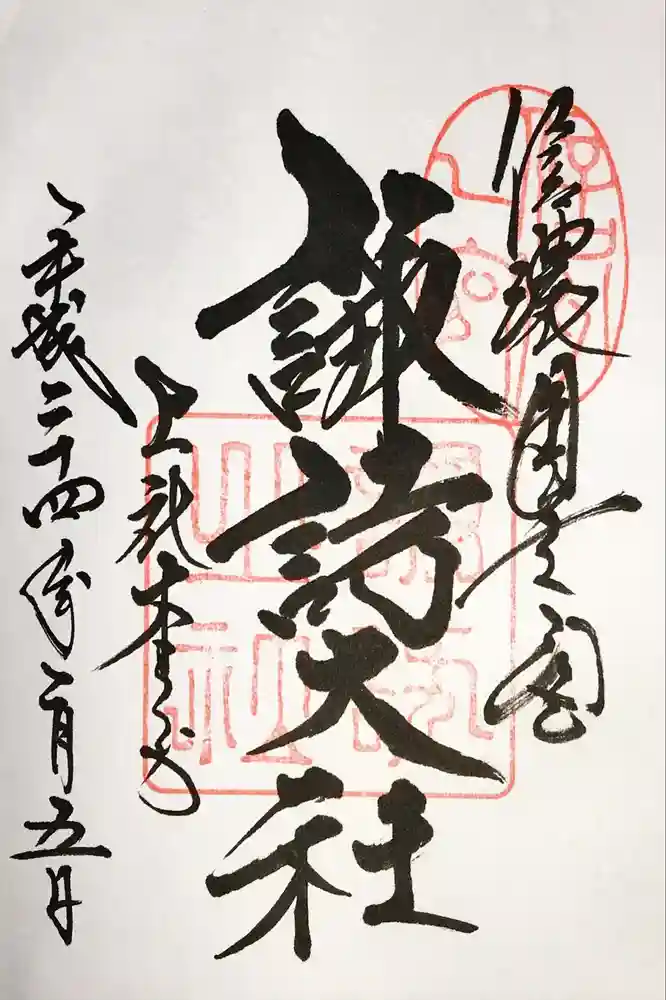 信濃國一之宮
諏訪大社
上社本宮
平成二十四年二月五日